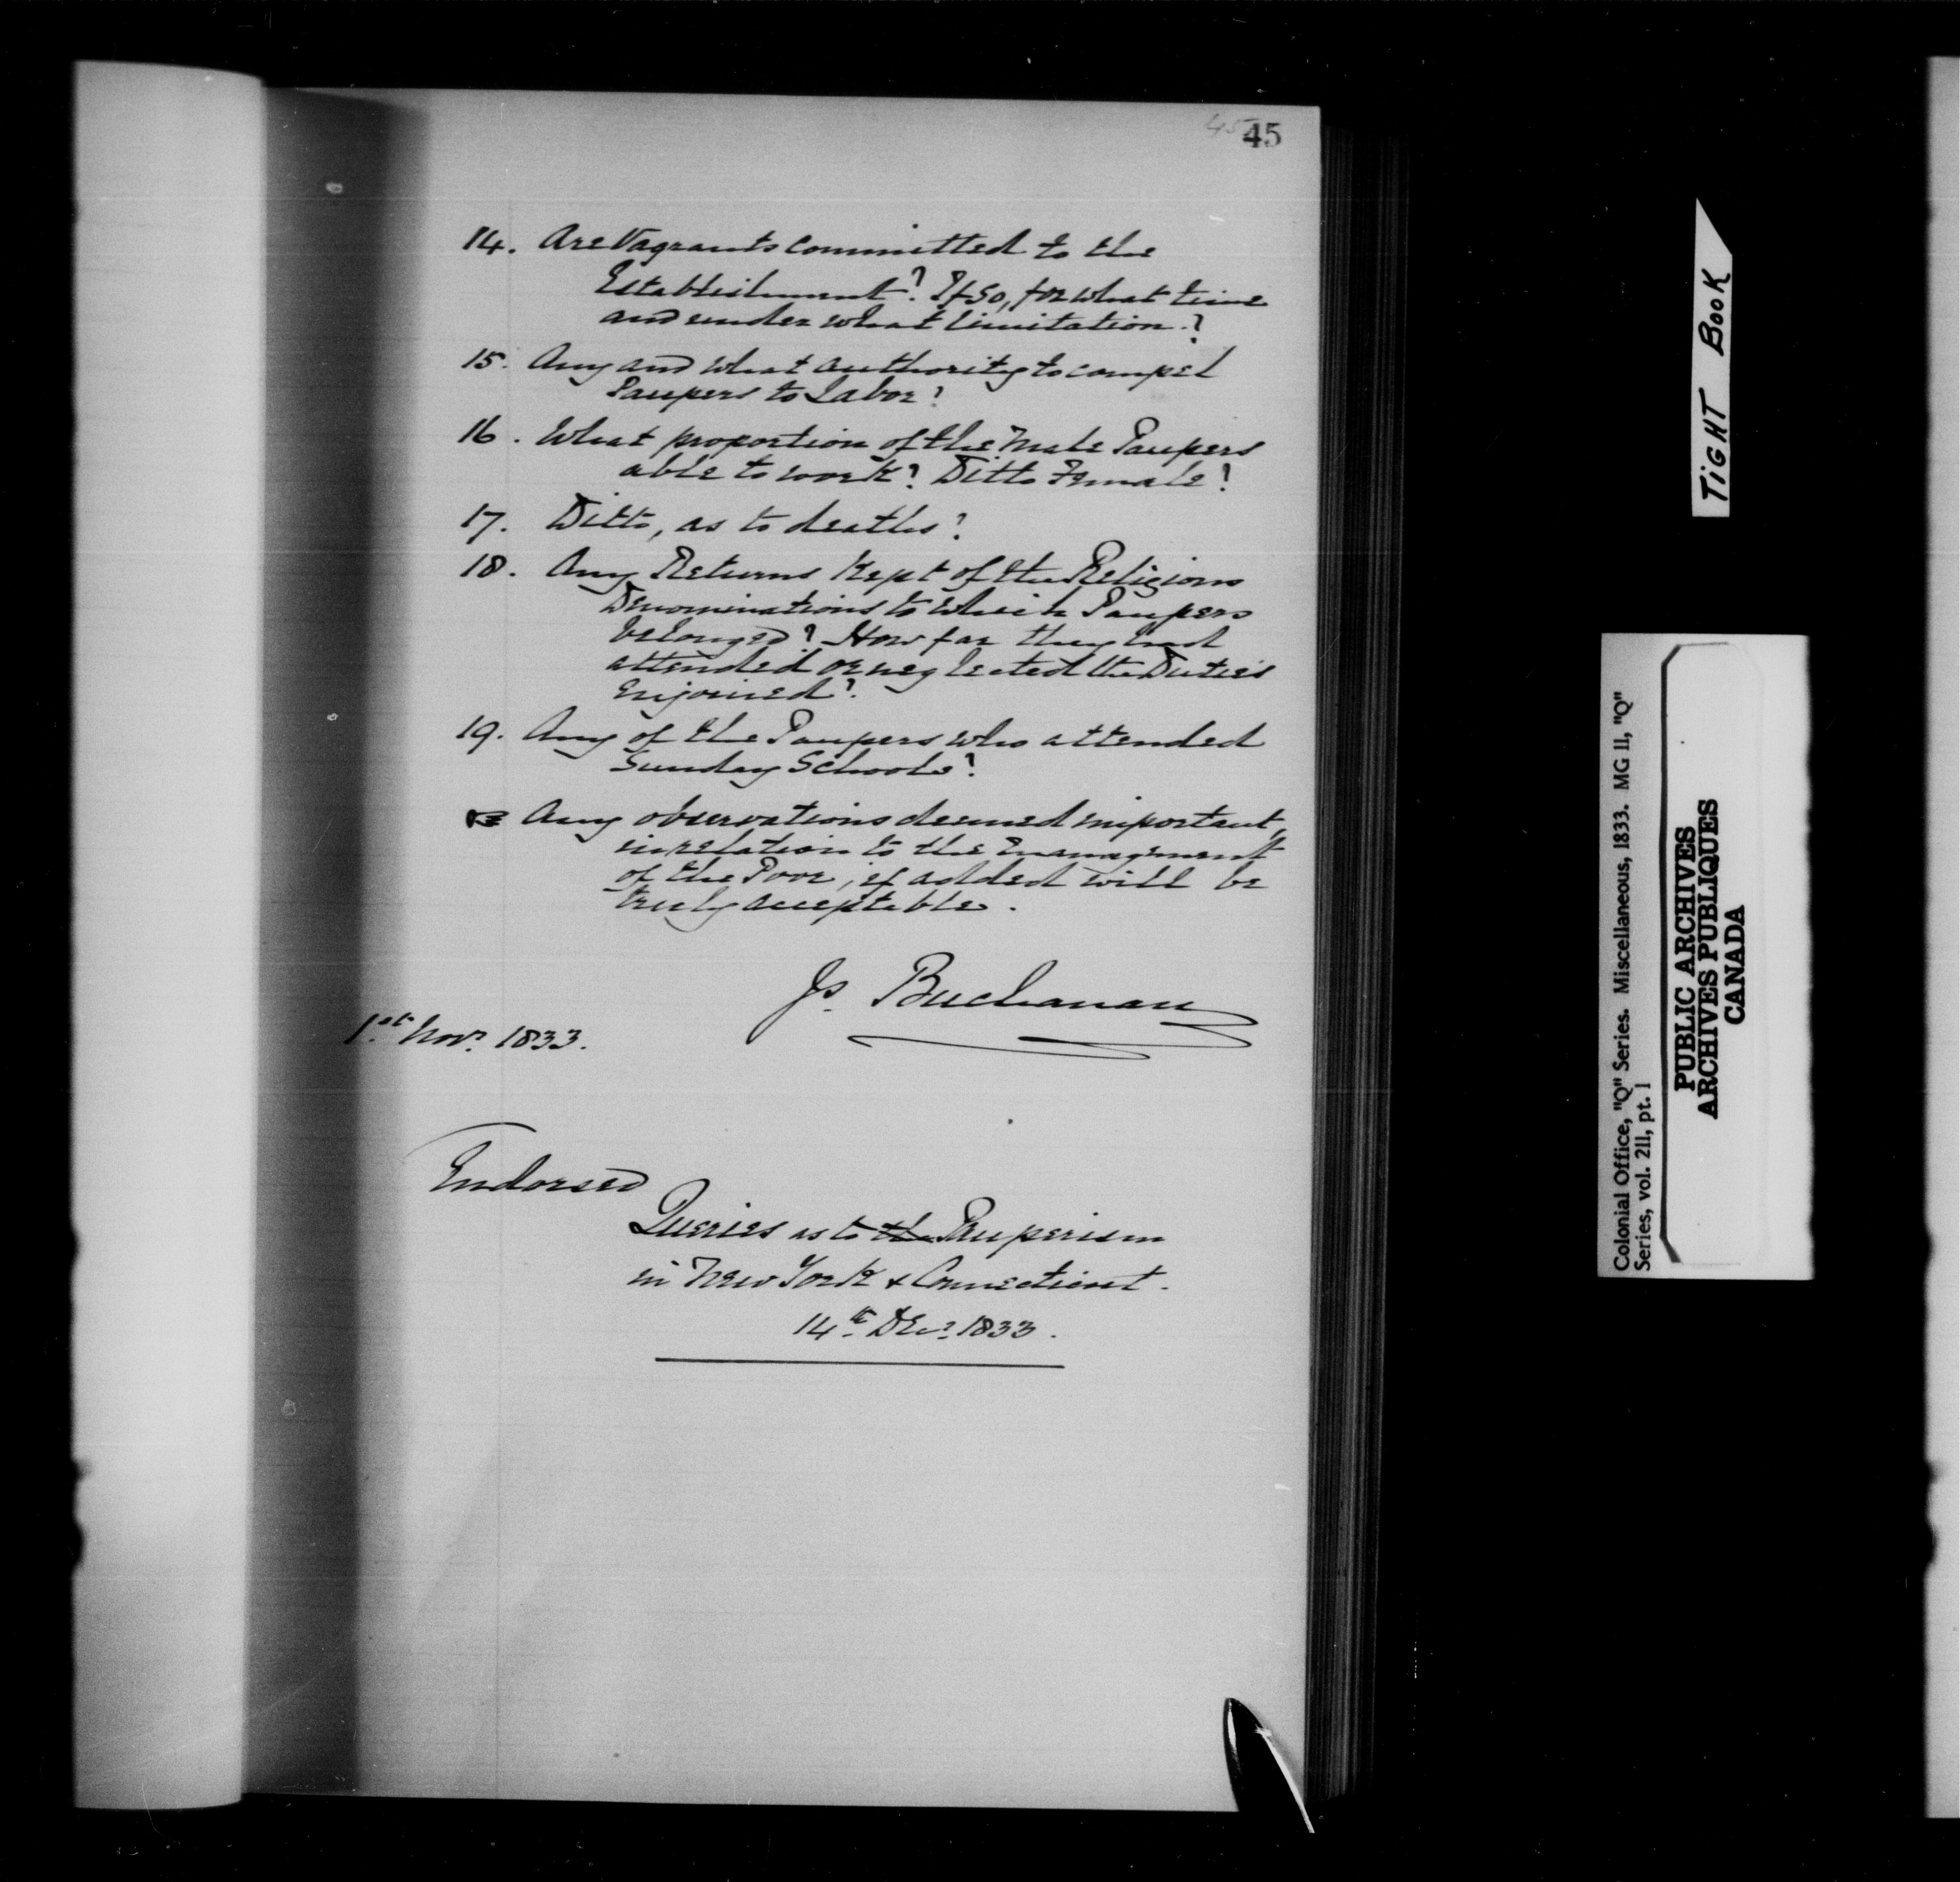 45 45
14. Are Vagrants committed to the
Establishment? If so, for what time
and under what limitation.?
15. Any and what authority to compel
Paupers to Labor?
16. What proportion of the Male Paupers
able to work? Ditto Female?
17. Ditto, as to deaths?
18. Any Returns Kept of the Religious
Denominations to which Paupers
belonged? How far they had
attended or neglected the Duties
enjoined?
19. Any of the Paupers who attended
Sunday Schools?
Any observations deemed important,
in relation to the management
of the Poor, if added will be
truly acceptable.
Js. Buchanan
1st Novr 1833.
Endorsed
Queries as to the Pauperism
in New York & Connecticut.
14th Decr 1833.
TIGHT BOOK
Colonial Office, "Q" Series. Miscellaneous, 1833. MG 11, "Q"
Series, vol. 211, pt. 1
PUBLIC ARCHIVES
ARCHIVES PUBLIQUES
CANADA